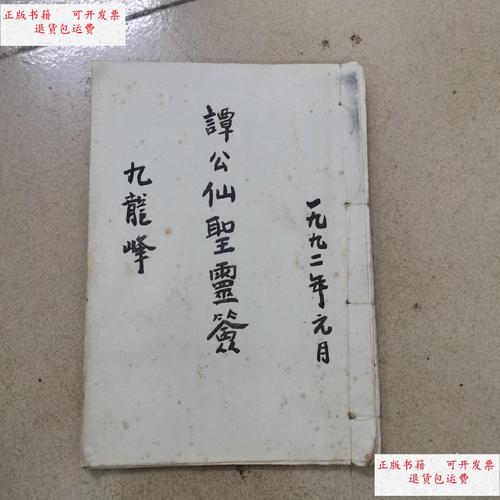 正版书籍 可开发票
退货包运费
一九九二年元月
譚公仙聖靈簽
九龍峰
正版书籍 可开发票
退货包运费